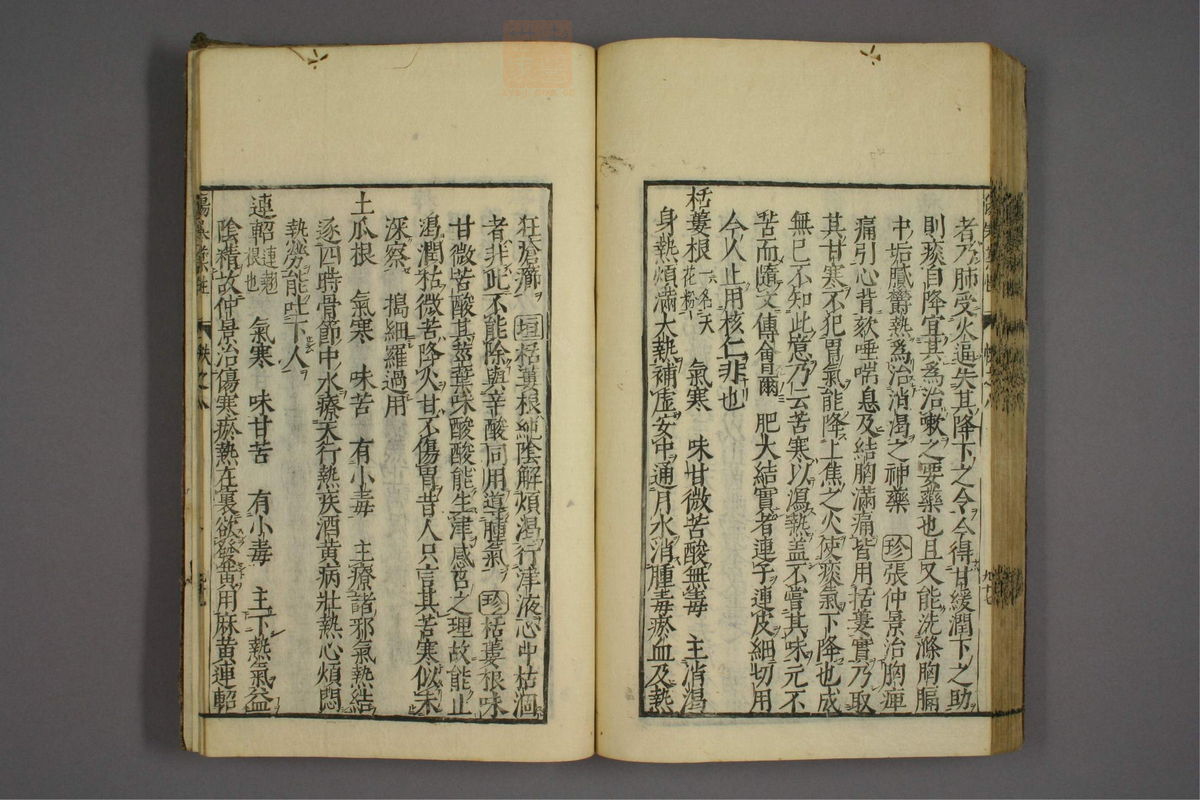 者乃肺受火逼失其降下之令今得甘緩潤下之助
則痰自降宜其爲治嗽之要藥也且又能洗滌胸膈
中垢膩鬱熱爲治消渴之神藥　珍張仲景治胸痺
痛引心背欬唾喘息及結胸滿痛皆用栝蔞實乃取
其甘寒不犯胃氣能降上焦之火使痰氣下降也成
無己不知此意乃云苦寒以瀉熱蓋不嘗其味元不
苦而隨文傅會爾　肥大結實者連子連皮細切用
今人止用核仁非也
栝蔞根一名天花粉　氣寒　味甘微苦酸無毒　主消渴
身熱煩滿大熱補虛安中通月水消腫毒瘀血及熱
狂瘡癤　垣栝蔞根純陰解煩渴行津液心中枯涸
者非此不能除與辛酸同用導腫氣　珍栝蔞根味
甘微苦酸其莖葉味酸酸能生津感召之理故能止
渴潤枯微苦降火甘不傷胃昔人只言其苦寒似未
深察　搗細羅過用
土瓜根　氣寒　味苦　有小毒　主療諸邪氣熱結
逐四時骨節中水療天行熱疾酒黃病壯熱心煩悶
熱勞能吐下人
連軺連翹根也　氣寒　味甘苦　有小毒　主下熱氣益
陰精故仲景治傷寒瘀熱在裏欲發黃用麻黃連軺